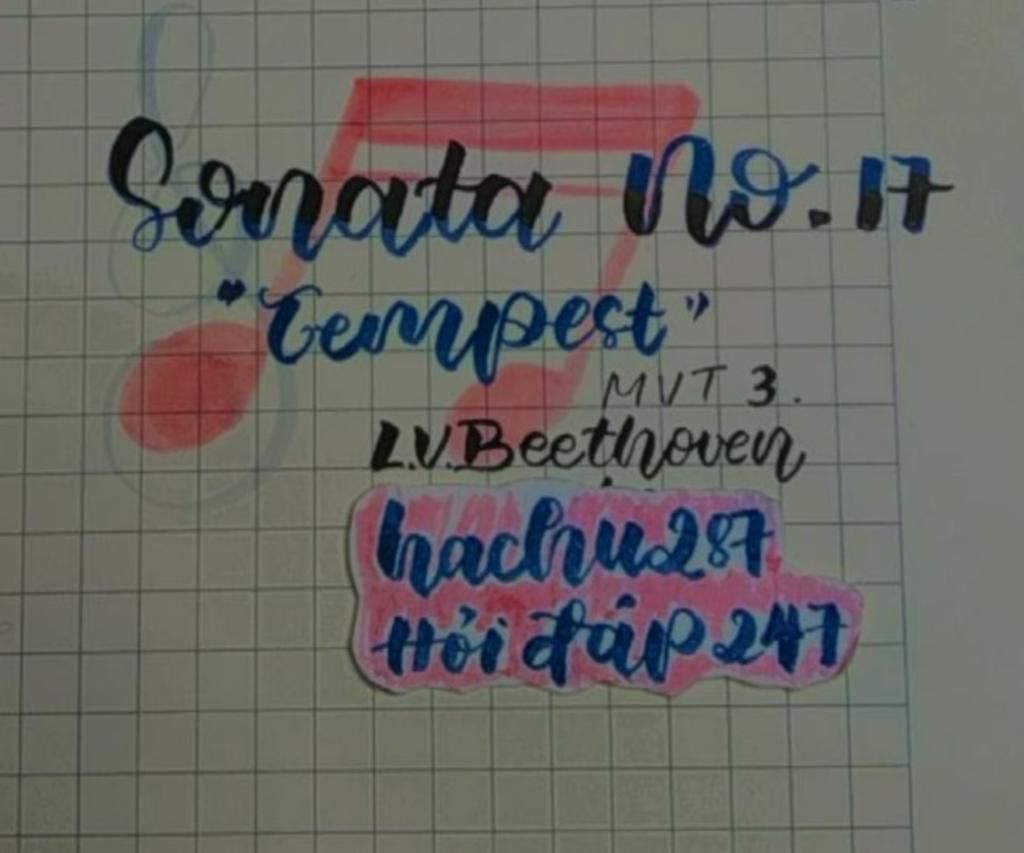 Sonata No. 17
"Tempest"
MVT 3.
L.V.Beethoven
hachu287
Hỏi đáp 247